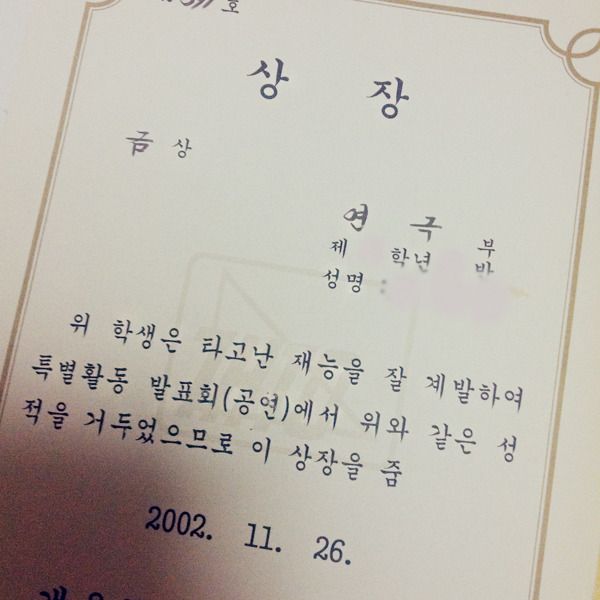 호
상 장
금 상
연 극 부
제 학년 반
성명 :
위 학생은 타고난 재능을 잘 계발하여
특별활동 발표회(공연)에서 위와 같은 성
적을 거두었으므로 이 상장을 줌
2002. 11. 26.